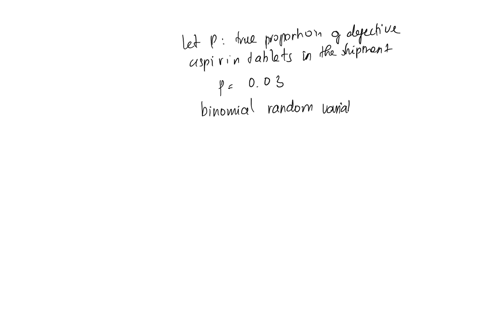 let p: true proportion of defective
aspirin tablets in the shipment
p = 0.03
binomial random varial